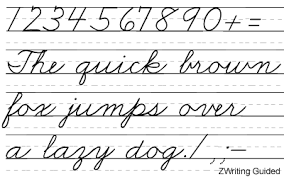 1234567890+=
The quick brown
fox jumps over
a lazy dog./,;-
ZWriting Guided